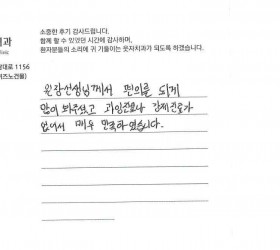 소중한 후기 감사드립니다.
함께 할 수 있었던 시간에 감사하며,
환자분들의 소리에 귀 기울이는 웃자치과가 되도록 하겠습니다.
치과
대로 1156
원장선생님께서 편의를 되게
많이 봐주셨고 과잉진료나 강제진료가
없어서 매우 만족하였습니다.